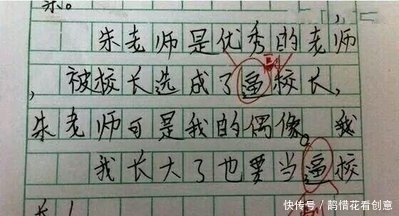 朱老师是优秀的老师
,被校长选成了逼校长,
朱老师可是我的偶像。我
我长大了也要当逼校
快传号/鹊惜花看创意